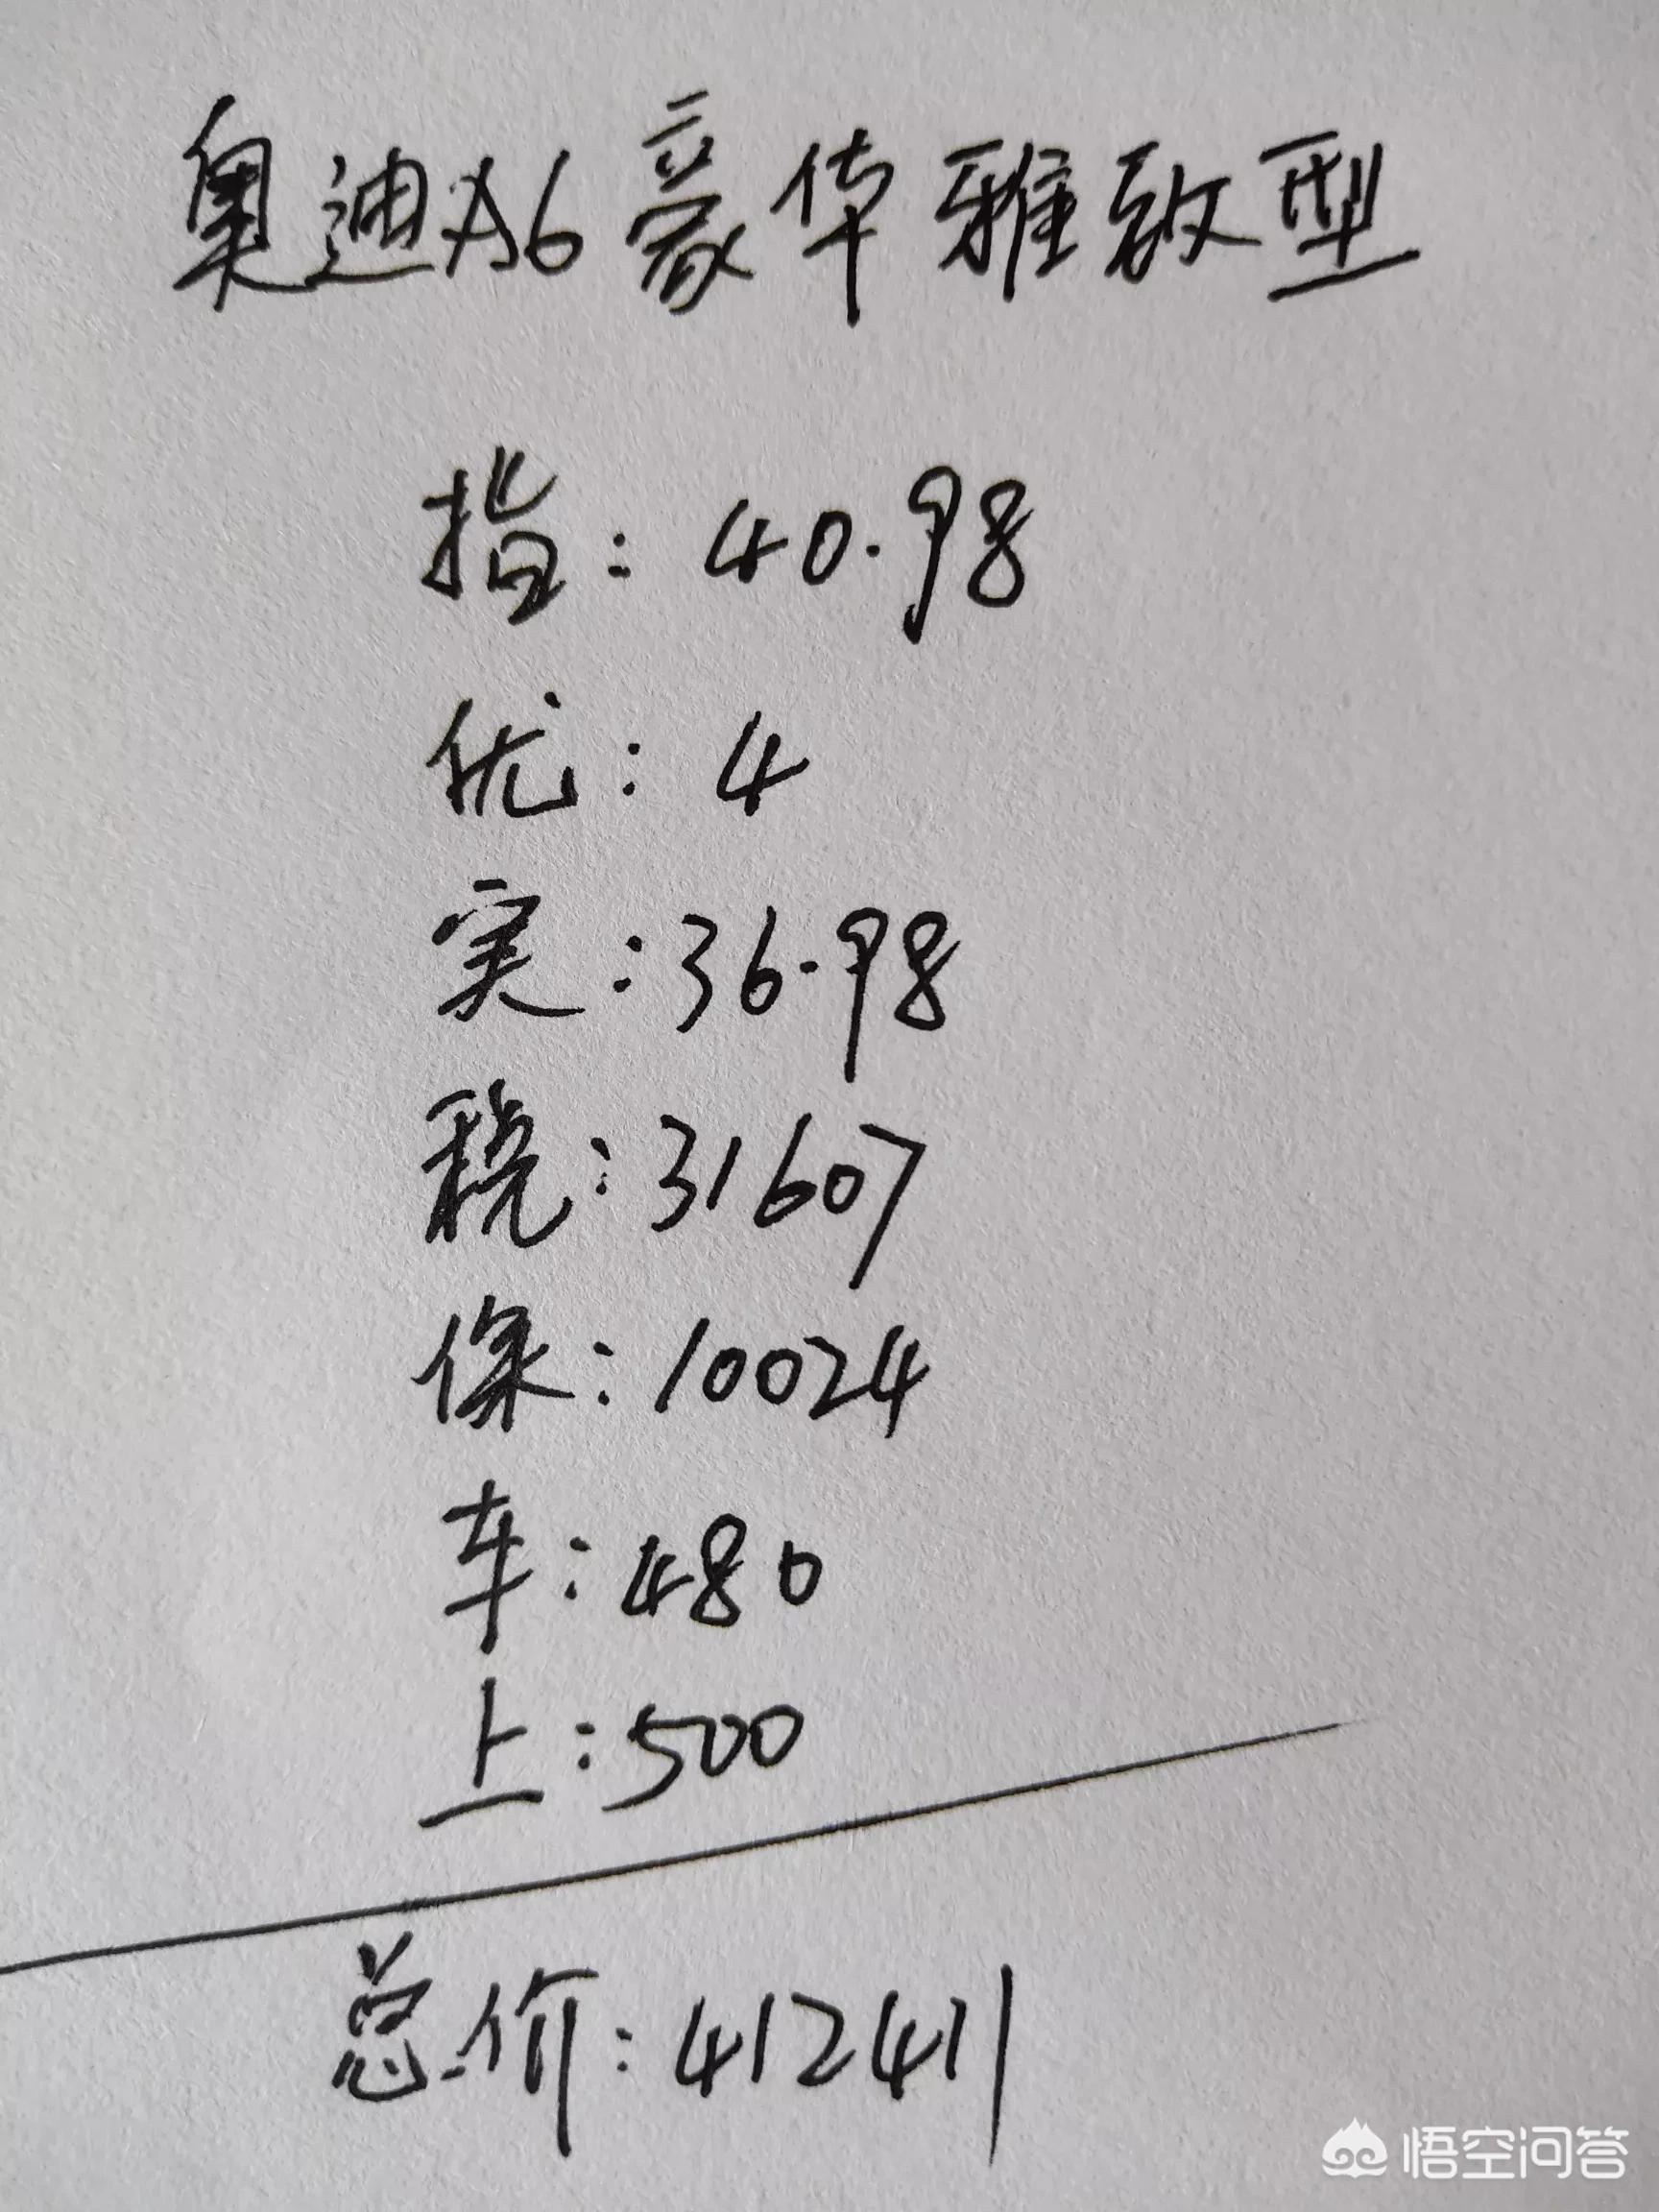 奥迪A6豪华雅致型
指:40.98
优:4
实:36.98
税:31607
保:10024
车:480
上:500
总价:412411
悟空问答